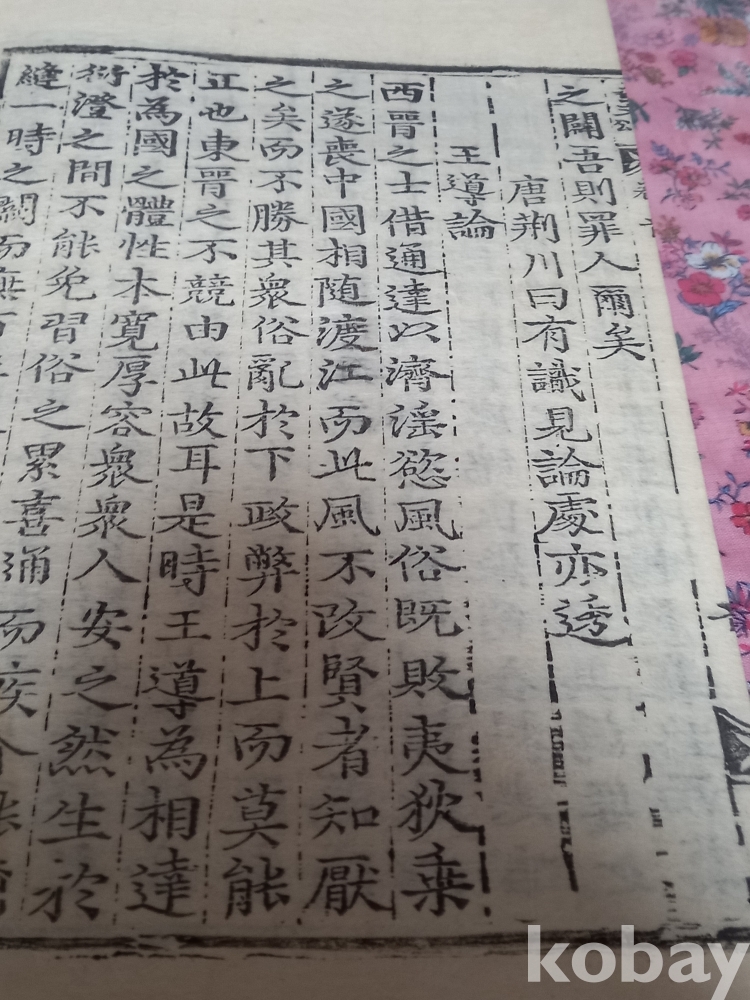 之闢吾則罪人爾矣
唐荆川曰有識見論處亦透
王導論
西晉之士借通達以濟淫慾風俗既敗夷狄乗
之遂喪中國相隨渡江而此風不改賢者知厭
之矣而不勝其衆俗亂於下政弊於上而莫能
正也東晉之不競由此故耳是時王導為相達
於為國之體性本寬厚容衆衆人安之然生於
衍澄之間不能免習俗之累喜通而疾介能彌
縫一時之闕而無百年之
kobay